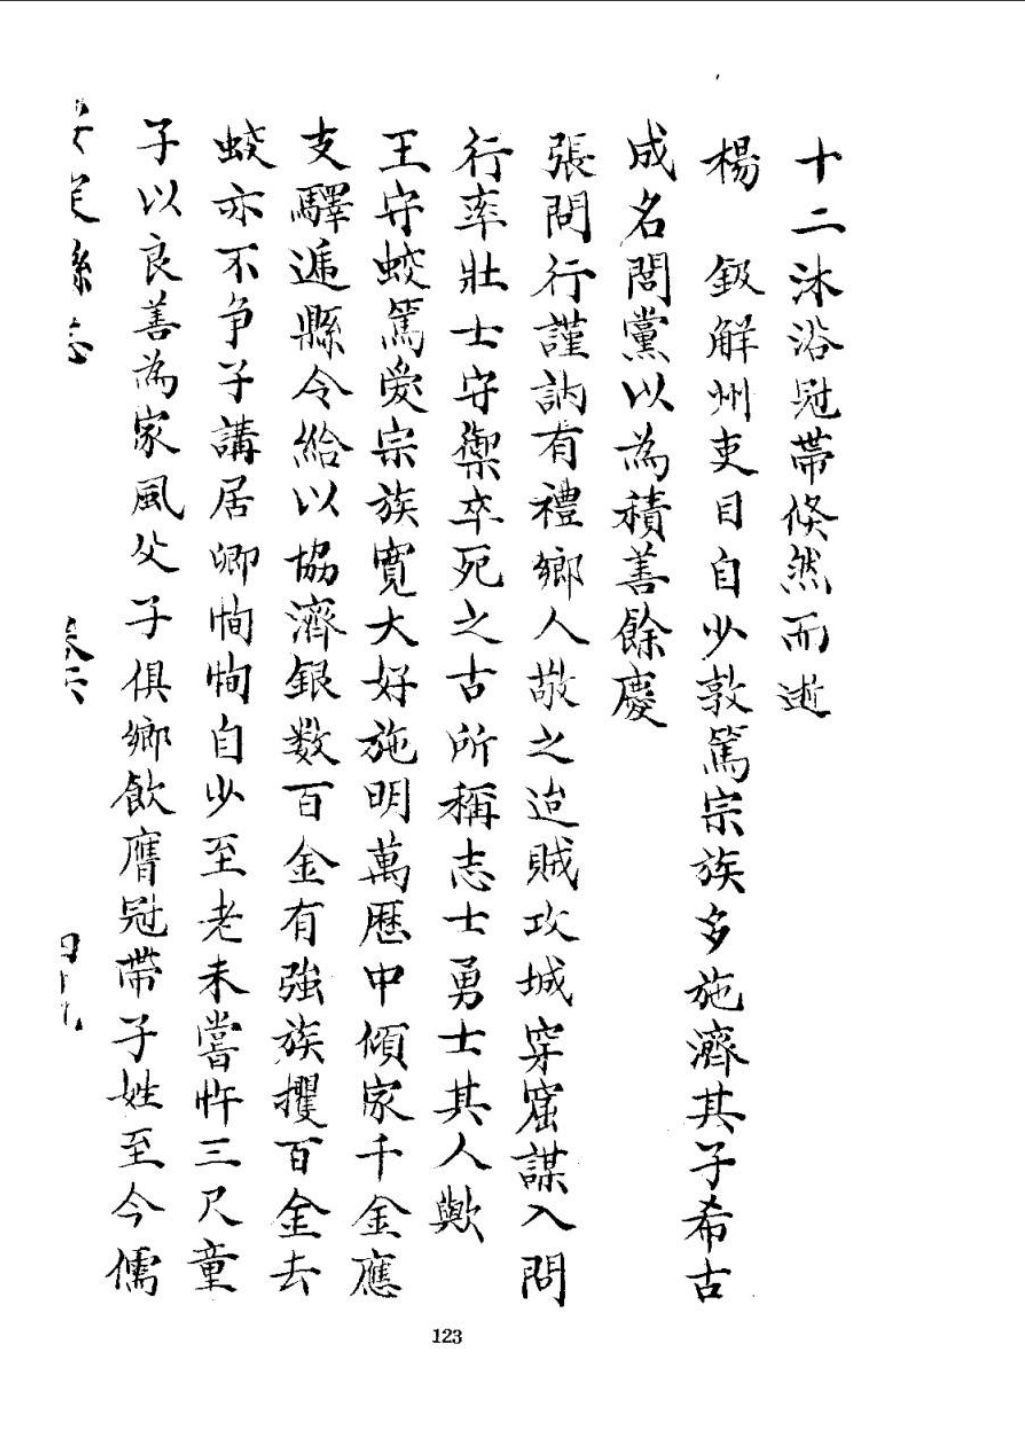 十二沐浴冠帶倏然而逝
楊　鈒解州吏目自少敦篤宗族多施濟其子希古
成名閭黨以為積善餘慶
張問行謹訥有禮鄉人敬之迨賊攻城穿窟謀入問
行率壯士守禦卒死之古所稱志士勇士其人歟
王守蛟篤愛宗族寬大好施明萬歷中傾家千金應
支驛遞縣令給以協濟銀数百金有強族攫百金去
蛟亦不争子講居鄉恂恂自少至老未嘗忤三尺童
子以良善為家風父子俱鄉飲膺冠帶子姓至今儒
縣志
卷六
四十九
123